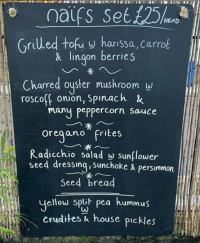 naifs set £25/HEAD
Grilled tofu w harissa, carrot
& lingon berries
Charred oyster mushroom w
roscoff onion, spinach &
many peppercorn sauce
oregano frites
Radicchio salad w sunflower
seed dressing, sunchoke & persimmon
seed bread
yellow split pea hummus
w
crudites & house pickles